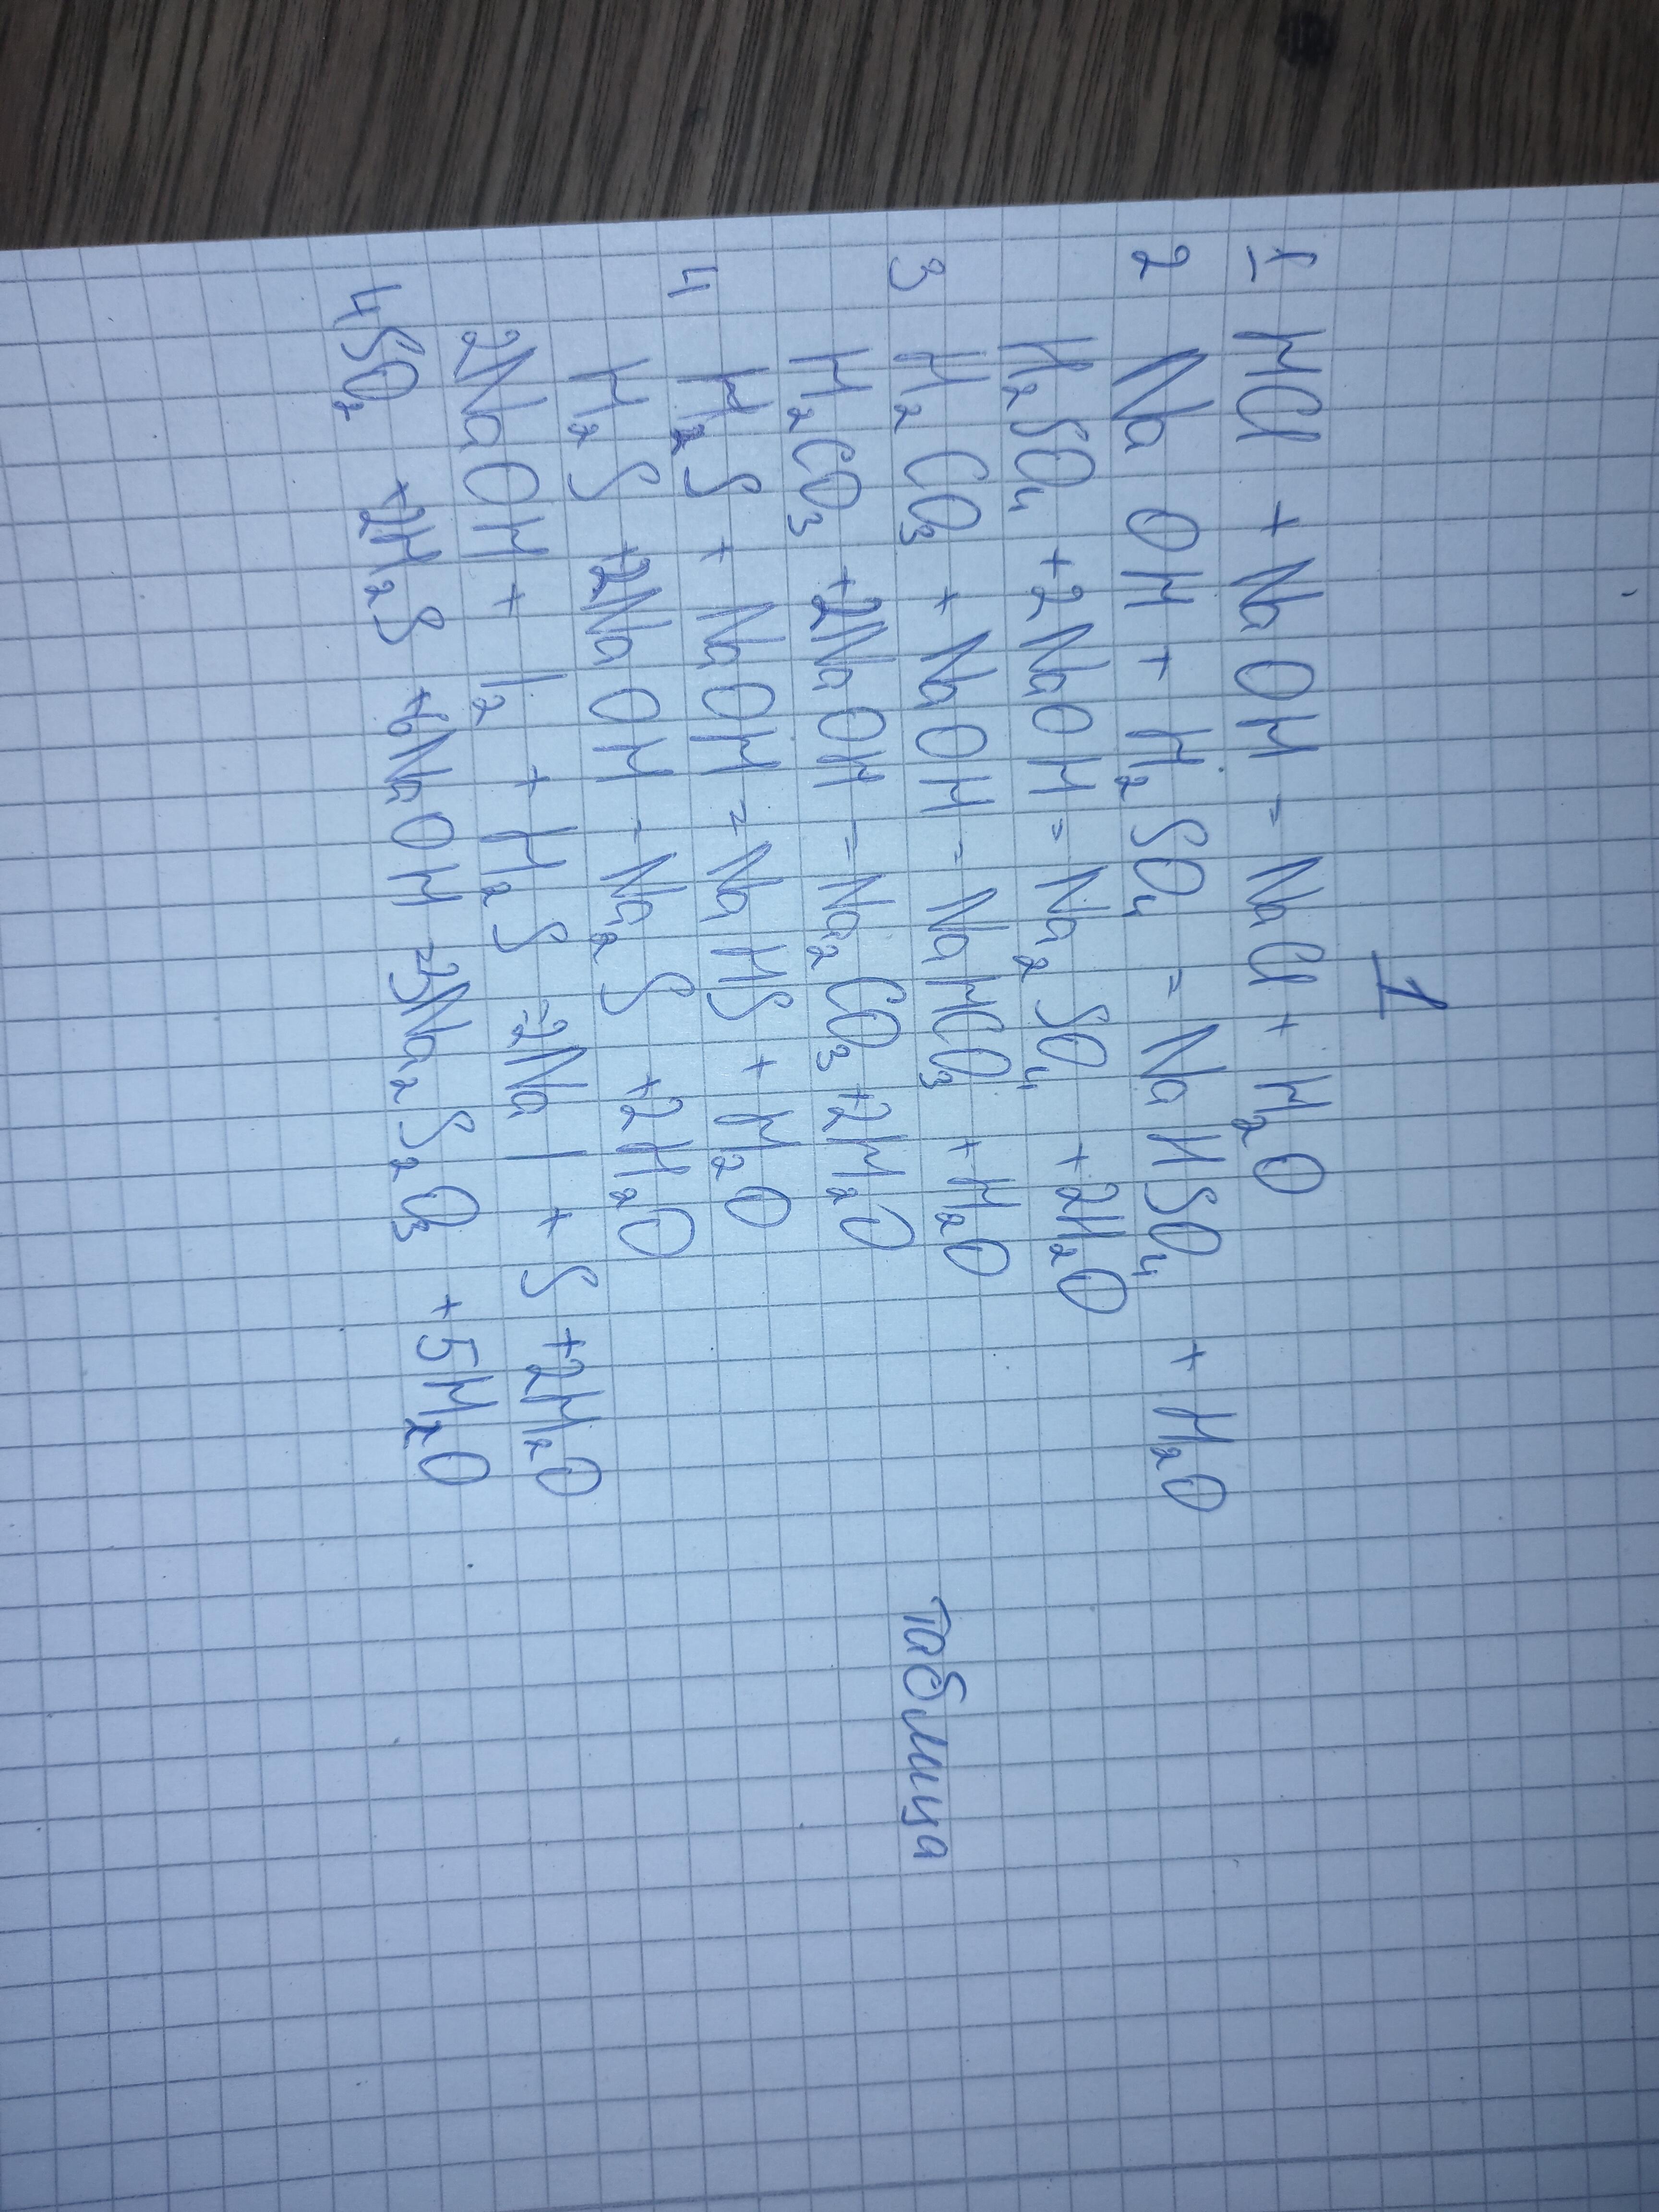 1
1 HCl + NaOH = NaCl + H₂O
2 NaOH + H₂SO₄ = NaHSO₄ + H₂O
H₂SO₄ + 2NaOH = Na₂SO₄ + 2H₂O
3 H₂CO₃ + NaOH = NaHCO₃ + H₂O
H₂CO₃ + 2NaOH = Na₂CO₃ + 2H₂O
4 H₂S + NaOH = NaHS + H₂O
H₂S + 2NaOH = Na₂S + 2H₂O
2NaOH + I₂ + H₂S = 2NaI + S + 2H₂O
4SO₂ + 2H₂S + 6NaOH = 3Na₂S₂O₃ + 5H₂O
таблица